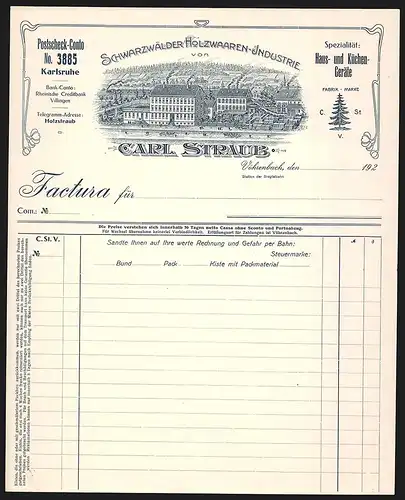 Postscheck-Conto
No. 3885
Karlsruhe
Bank-Conto:
Rheinische Creditbank
Villingen
Telegramm-Adresse:
Holzstraub
SCHWARZWÄLDER HOLZWAAREN-INDUSTRIE
VON
CARL STRAUB.
Spezialität:
Haus- und Küchen-
Geräte
FABRIK - MARKE
C. St
V.
Vöhrenbach, den 192
Station der Bregtalbahn
Factura für
Com: №
Die Preise verstehen sich innerhalb 30 Tagen netto Cassa ohne Sconto und Portoabzug.
Für Wechsel übernehme keinerlei Verbindlichkeit. Erfüllungsort für Zahlungen ist Villingen.
C. St. V.
№
Sandte Ihnen auf Ihre werte Rechnung und Gefahr per Bahn:
Steuermarke:
Bund Pack Kiste mit Packmaterial